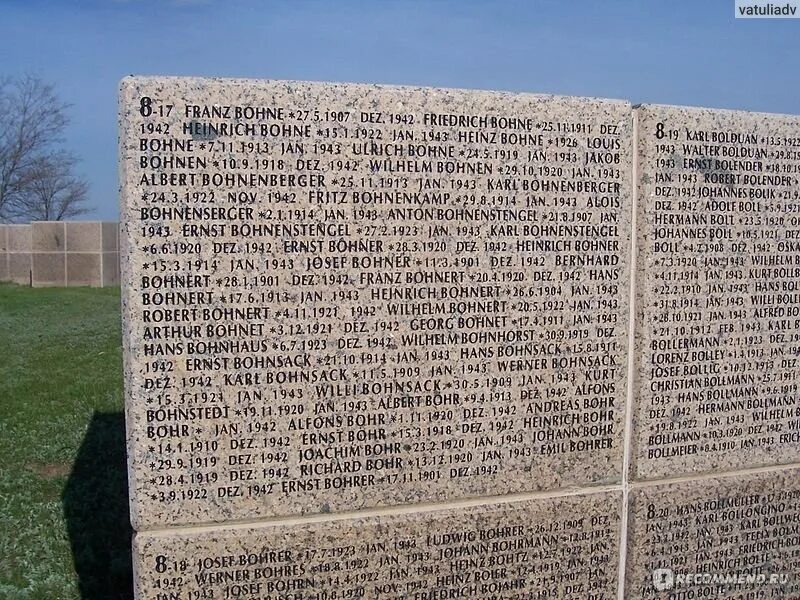 vatuliadv
8-17 FRANZ BOHNE *27.5.1907 DEZ. 1942 FRIEDRICH BOHNE *25.11.1911 DEZ.
1942 HEINRICH BOHNE *15.1.1922 JAN. 1943 HEINZ BOHNE *1926 LOUIS
BOHNE *7.11.1913 JAN. 1943 ULRICH BOHNE *24.5.1919 JAN. 1943 JAKOB
BOHNEN *10.9.1918 DEZ. 1942 WILHELM BOHNEN *29.10.1920 JAN. 1943
ALBERT BOHNENBERGER *25.11.1913 JAN. 1943 KARL BOHNENBERGER
*24.3.1922 NOV. 1942 FRITZ BOHNENKAMP *29.8.1914 JAN. 1943 ALOIS
BOHNENSERGER *2.1.1914 JAN. 1943 ANTON BOHNENSTENGEL *21.8.1907 JAN.
1943 ERNST BOHNENSTENGEL *27.2.1923 JAN. 1943 KARL BOHNENSTENGEL
*6.6.1920 DEZ. 1942 ERNST BÖHNER *28.3.1920 DEZ. 1942 HEINRICH BÖHNER
*15.3.1914 JAN. 1943 JOSEF BÖHNER *11.3.1901 DEZ. 1942 BERNHARD
BÖHNERT *28.1.1901 DEZ. 1942 FRANZ BÖHNERT *20.4.1920 DEZ. 1942 HANS
BÖHNERT *17.6.1913 JAN. 1943 HEINRICH BÖHNERT *26.6.1904 JAN. 1943
ROBERT BÖHNERT *4.11.1921 1942 WILHELM BÖHNERT *20.5.1922 JAN. 1943
ARTHUR BOHNET *3.12.1921 DEZ. 1942 GEORG BOHNET *17.4.1911 JAN. 1943
HANS BOHNHAUS *6.7.1923 DEZ. 1942 WILHELM BOHNHORST *30.9.1919 DEZ.
1942 ERNST BOHNSACK *21.10.1914 JAN. 1943 HANS BOHNSACK *15.8.1911
DEZ. 1942 KARL BOHNSACK *11.5.1909 JAN. 1943 WERNER BOHNSACK
*15.3.1921 JAN. 1943 WILLI BOHNSACK *30.5.1909 JAN. 1943 KURT
BOHNSTEDT *19.11.1920 JAN. 1943 ALBERT BÖHR *9.4.1913 DEZ. 1942 ALFONS
BOHR * JAN. 1942 ALFONS BOHR *1.11.1920 DEZ. 1942 ANDREAS BOHR
*14.1.1910 DEZ. 1942 ERNST BÖHR *15.3.1918 DEZ. 1942 HEINRICH BOHR
*29.9.1919 DEZ. 1942 JOACHIM BOHR *23.2.1920 JAN. 1943 JOHANN BOHR
*28.4.1919 DEZ. 1942 RICHARD BOHR *13.12.1920 JAN. 1943 EMIL BOHRER
*3.9.1922 DEZ. 1942 ERNST BOHRER *17.11.1901 DEZ. 1942
8-18 JOSEF BOHRER *17.7.1923 JAN. 1943 LUDWIG BOHRER *26.12.1909 DEZ.
1942 WERNER BOHRES *18.8.1922 JAN. 1943 JOHANN BOHRMANN *12.8.1919
JOSEF BOHRN *14.4.1922 JAN. 1943 HEINZ BOHTZ *12.7.1922 JAN.
*10.8.1920 NOV. 1942 HEINZ BOIER *12.4.1919 JAN. 1943
FRIEDRICH BOJAHR *21.9.1907 JAN.
8-19 KARL BOLDUAN *13.5.192
1943 WALTER BOLDUAN *29.8.19
1943 ERNST BOLENDER *18.10.
JAN. 1943 ROBERT BOLENDER
DEZ. 1942 JOHANNES BOLIK *21.9
DEZ. 1942 ADOLF BOLL *5.9.1921
HERMANN BOLL *23.5.1920
JOHANNES BOLL *16.5.1921 DEZ.
BOLL *4.2.1908 DEZ. 1942 OSKA
*7.3.1920 JAN. 1943 WILHELM B
*4.11.1914 JAN. 1943 KURT BOLLB
*22.2.1910 JAN. 1943 HANS BOLL
*31.8.1914 JAN. 1943 WILLI BOLLE
*28.10.1921 JAN. 1943 ALFRED BO
*21.10.1912 FEB. 1943 KARL B
BOLLERMANN *2.1.1923 DEZ. 19
LORENZ BOLLEY *1.4.1913 JAN. 19
JOSEF BOLLIG *10.12.1913 DEZ.
CHRISTIAN BOLLMANN *25.7.1911
1943 HANS BOLLMANN *9.6.1919
DEZ. 1942 HERMANN BOLLMANN
*19.8.1922 JAN. 1943 WILHELM B
BOLLMANN *10.3.1920 DEZ. 1942 W
BOLLMEIER *8.4.1910 JAN. 1943 ERIC
8-20 HANS BOLLMÜLLER *17.3.1920
JAN. 1943 KARL BOLLONGINO
*23.2.1922 JAN. 1943 KARL BOLLWEG
*6.4.1913 JAN. 1943 FELIX BOLM
JAN. 1943 FRIEDRICH BOL
JAN. 1943 HANS BOLT
OTTO BOLTE
RECOMMEND.RU